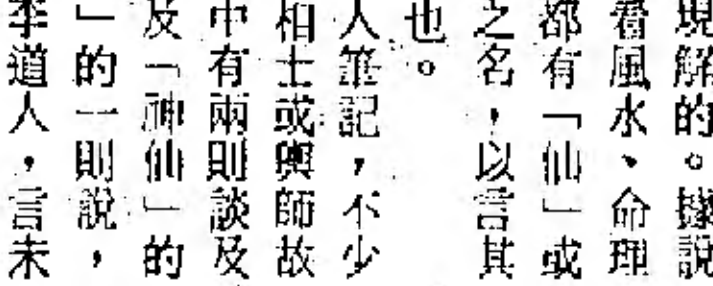 現解的。據說
看風水、命理
都有「仙」或
之名，以言其
也。
人筆記，不少
相士或輿師故
中有兩則談及
及「神仙」的
」的一則說，
李道人，言未